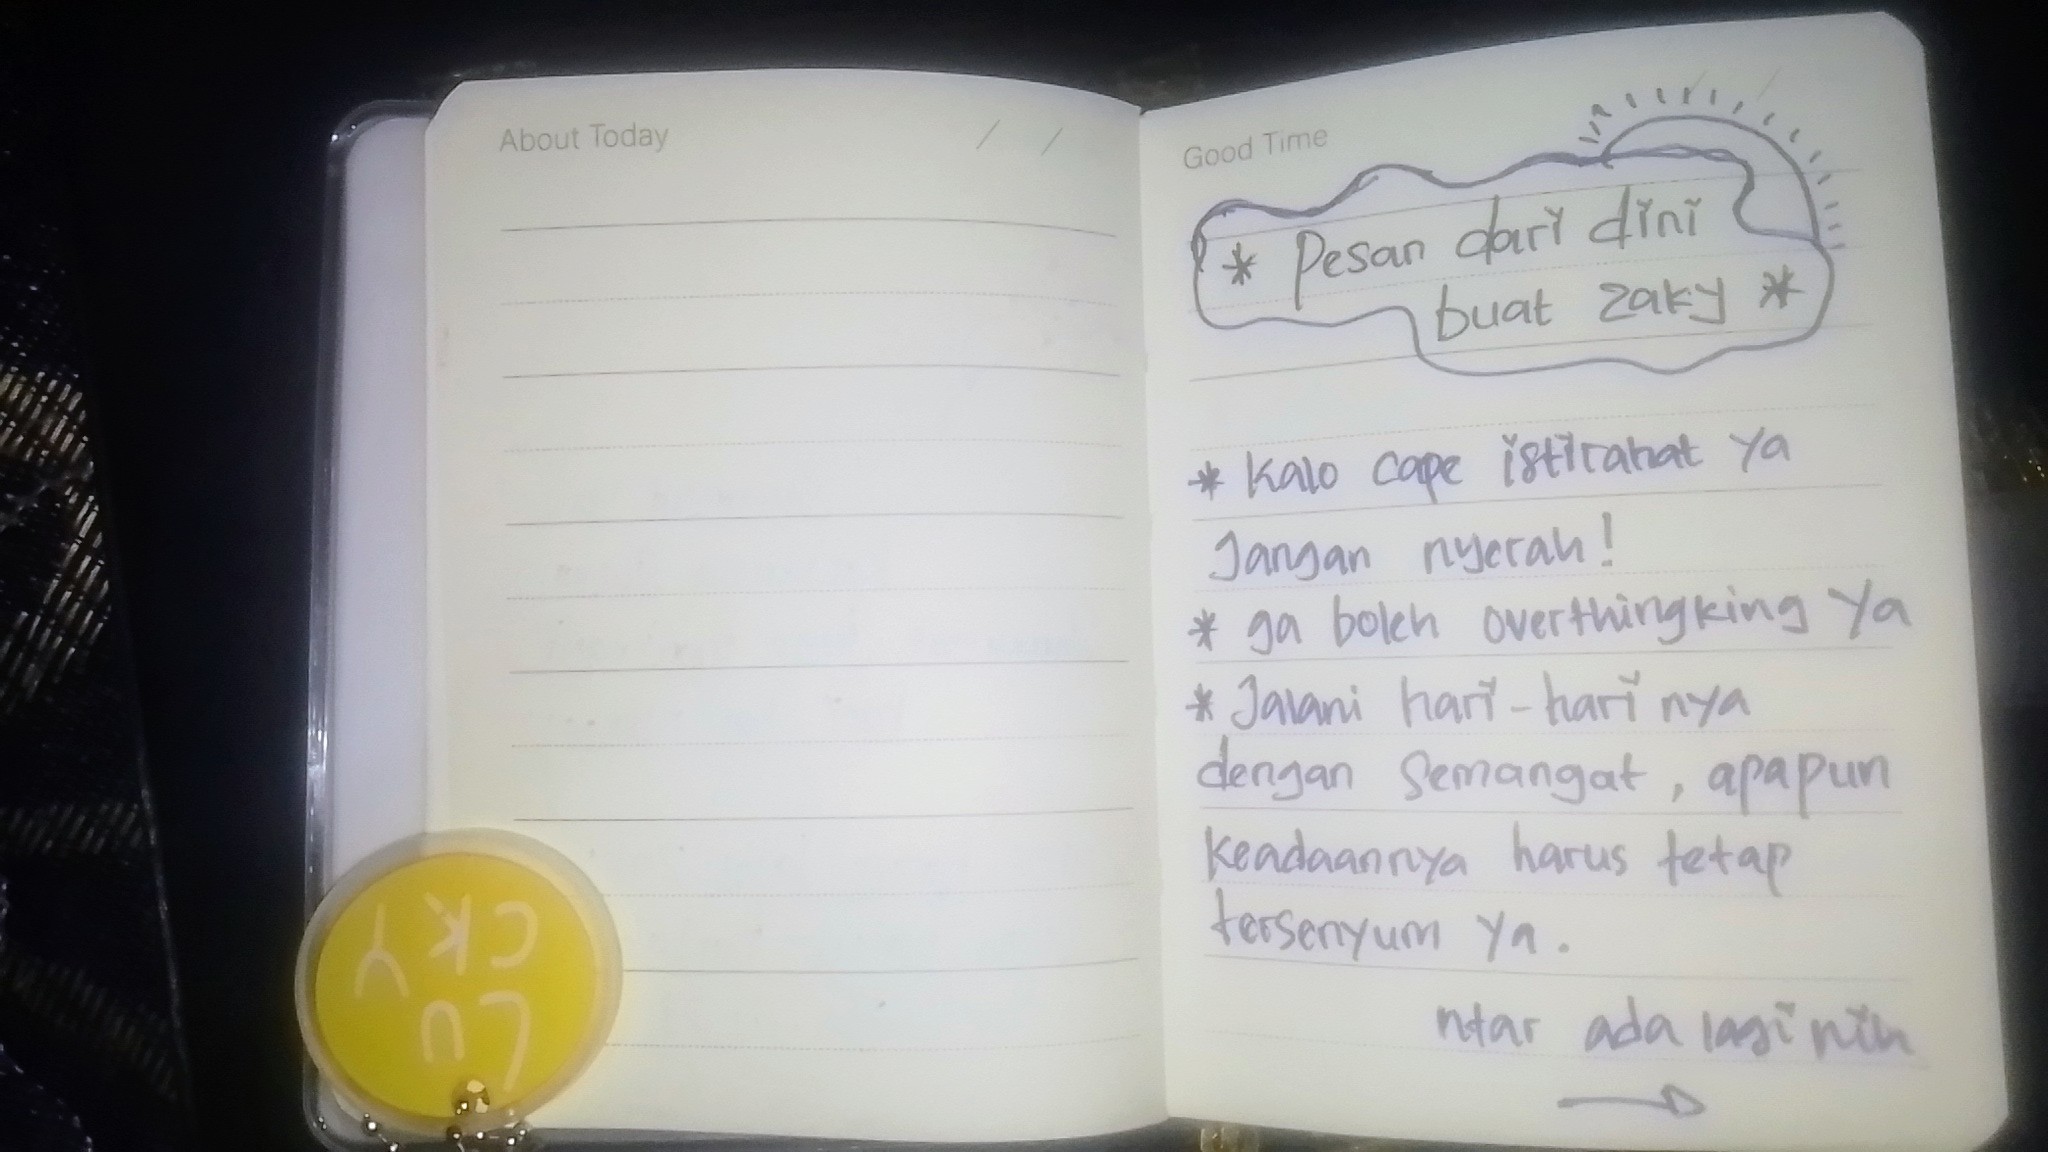 About Today / /
Good Time / /
* Pesan dari dini
buat zaky *
* Kalo cape istirahat ya
Jangan nyerah!
* ga boleh overthingking ya
* Jalani hari-hari nya
dengan semangat, apapun
keadaannya harus tetap
tersenyum ya.
ntar ada lagi nih
LU
CKY